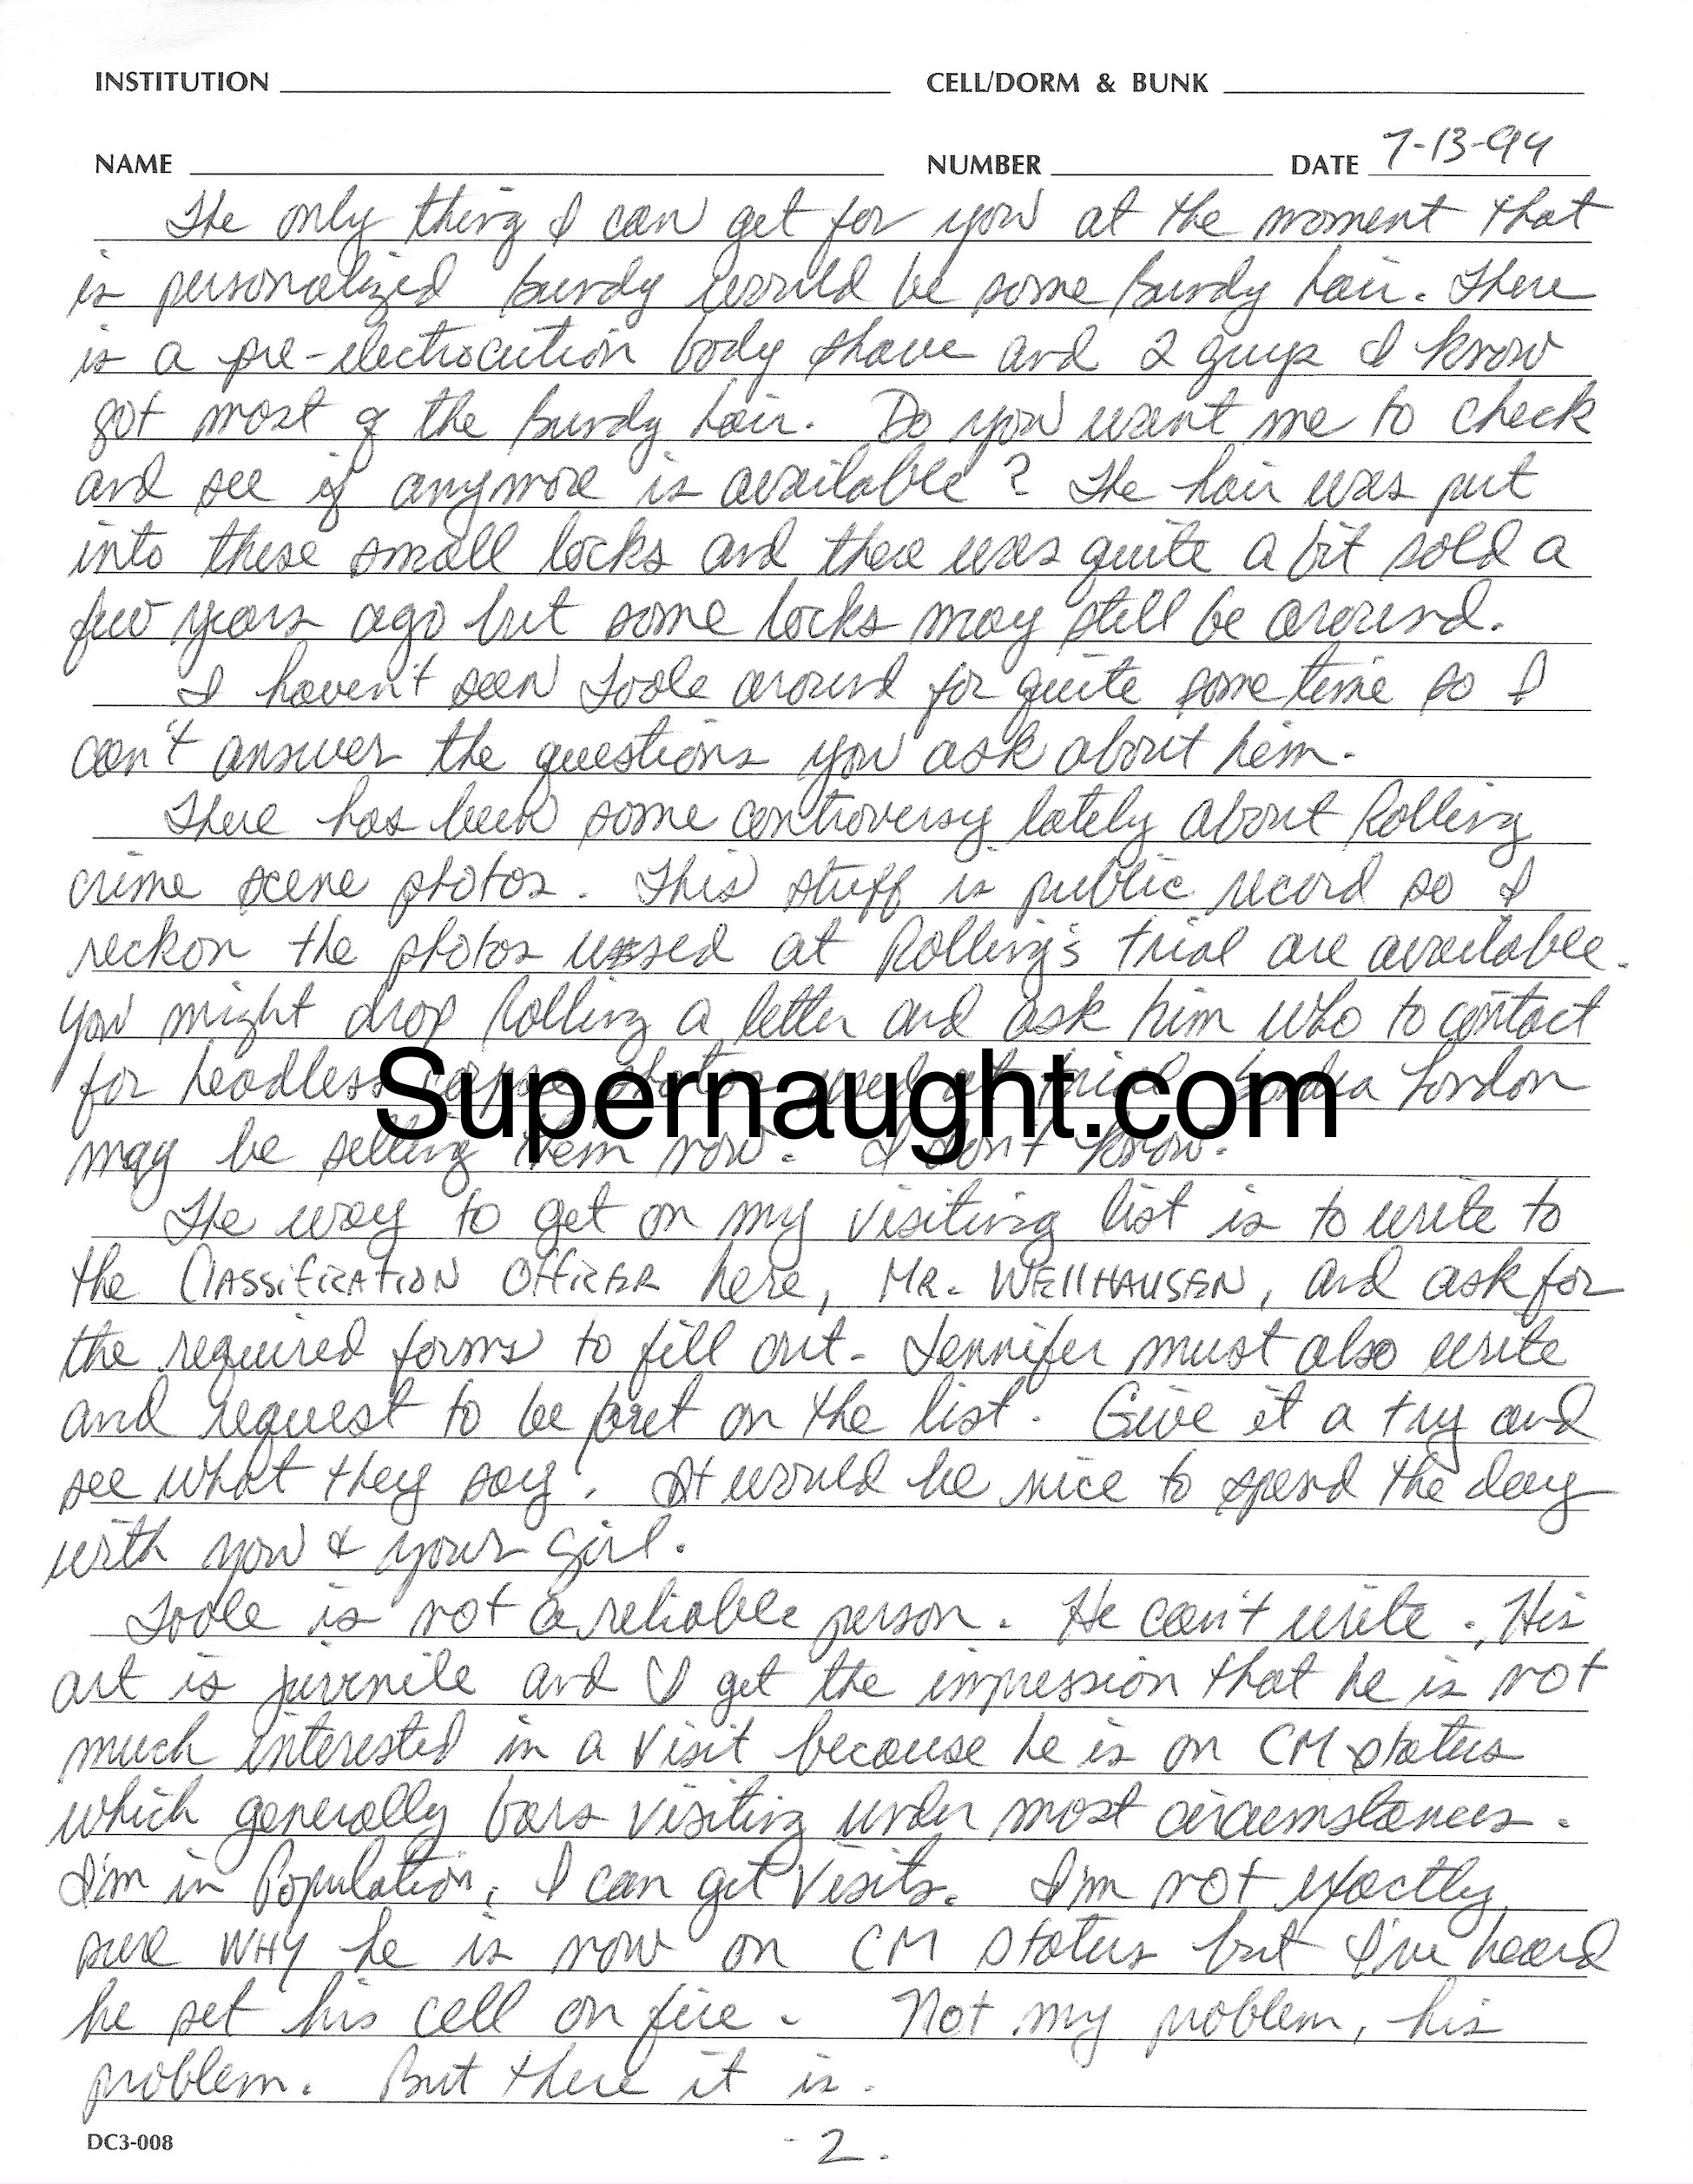 INSTITUTION CELL/DORM & BUNK
NAME NUMBER DATE 7-13-94
The only thing I can get for you at the moment that
is personalized Bundy would be some Bundy hair. There
is a pre-electrocution body shave and 2 guys I know
got most of the Bundy hair. Do you want me to check
and see if anymore is available? The hair was put
into these small locks and there was quite a bit sold a
few years ago but some locks may still be around.
I haven't seen Toole around for quite some time so I
can't answer the questions you ask about him.
There has been some controversy lately about Rolling
crime scene photos. This stuff is public record so I
reckon the photos used at Rolling's trial are available.
You might drop Rolling a letter and ask him who to contact
for headless corpse photos used at trial. Sondra London
may be selling them now. I don't know.
Supernaught.com
The way to get on my visiting list is to write to
the CLASSiFiCATiON OffiCER here, MR. WEllHAUSEN, and ask for
the required forms to fill out. Jennifer must also write
and request to be put on the list. Give it a try and
see what they say. It would be nice to spend the day
with you & your girl.
Toole is not a reliable person. He can't write. His
art is juvenile and I get the impression that he is not
much interested in a visit because he is on CM status
which generally bars visiting under most circumstances.
I'm in Population, I can get visits. I'm not exactly
sure WHY he is now on CM status but I've heard
he set his cell on fire. Not my problem, his
problem. But there it is.
DC3-008
-2.